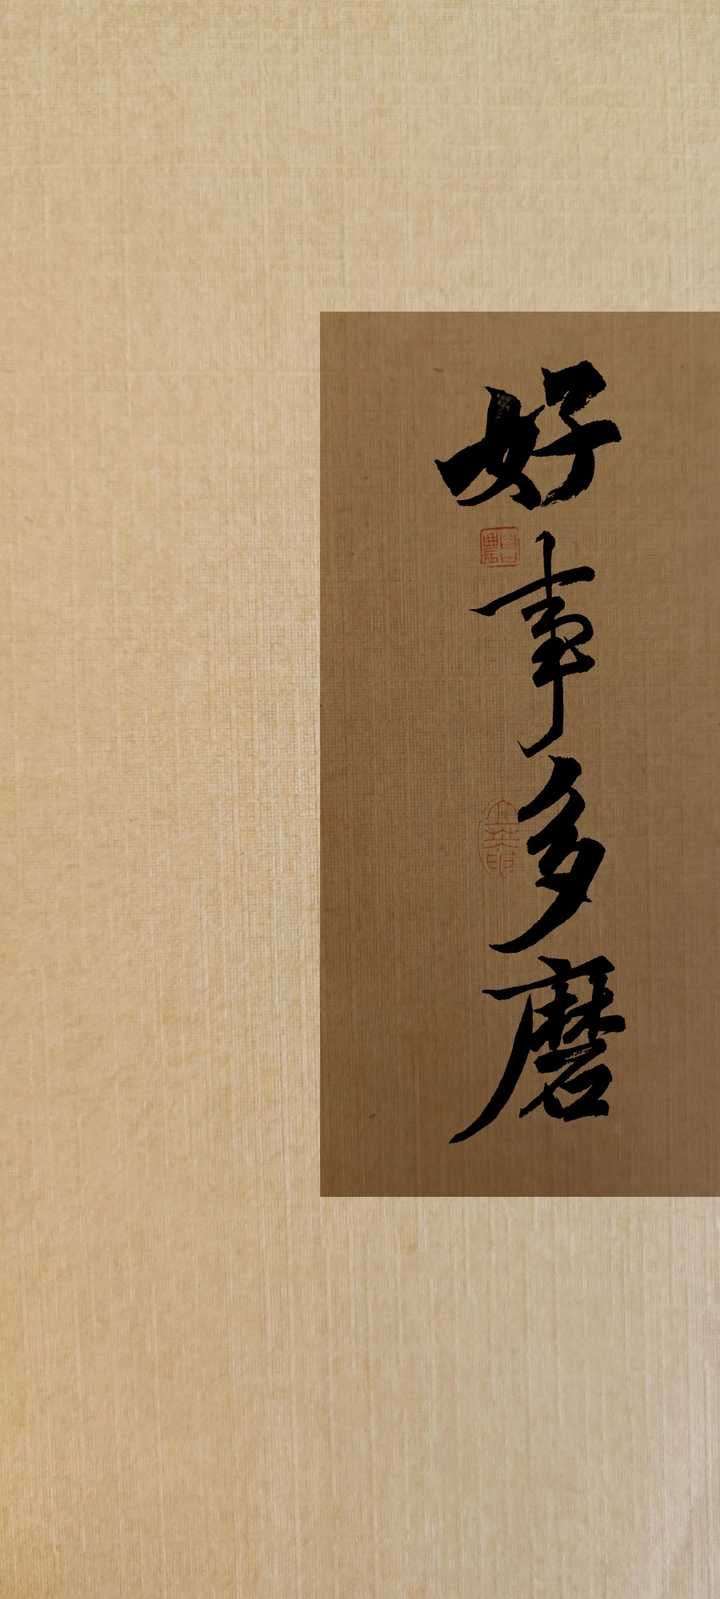 好事多磨